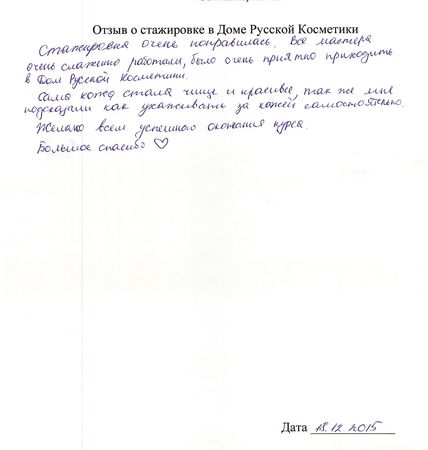 Отзыв о стажировке в Доме Русской Косметики
Стажировка очень понравилась. Все мастера
очень слаженно работали, было очень приятно приходить
в Дом Русской Косметики.
Сама кожа стала чище и красивее, так же мне
подсказали как ухаживать за кожей самостоятельно.
Желаю всем успешного окончания курса.
Большое спасибо ♡
Дата 18.12.2015